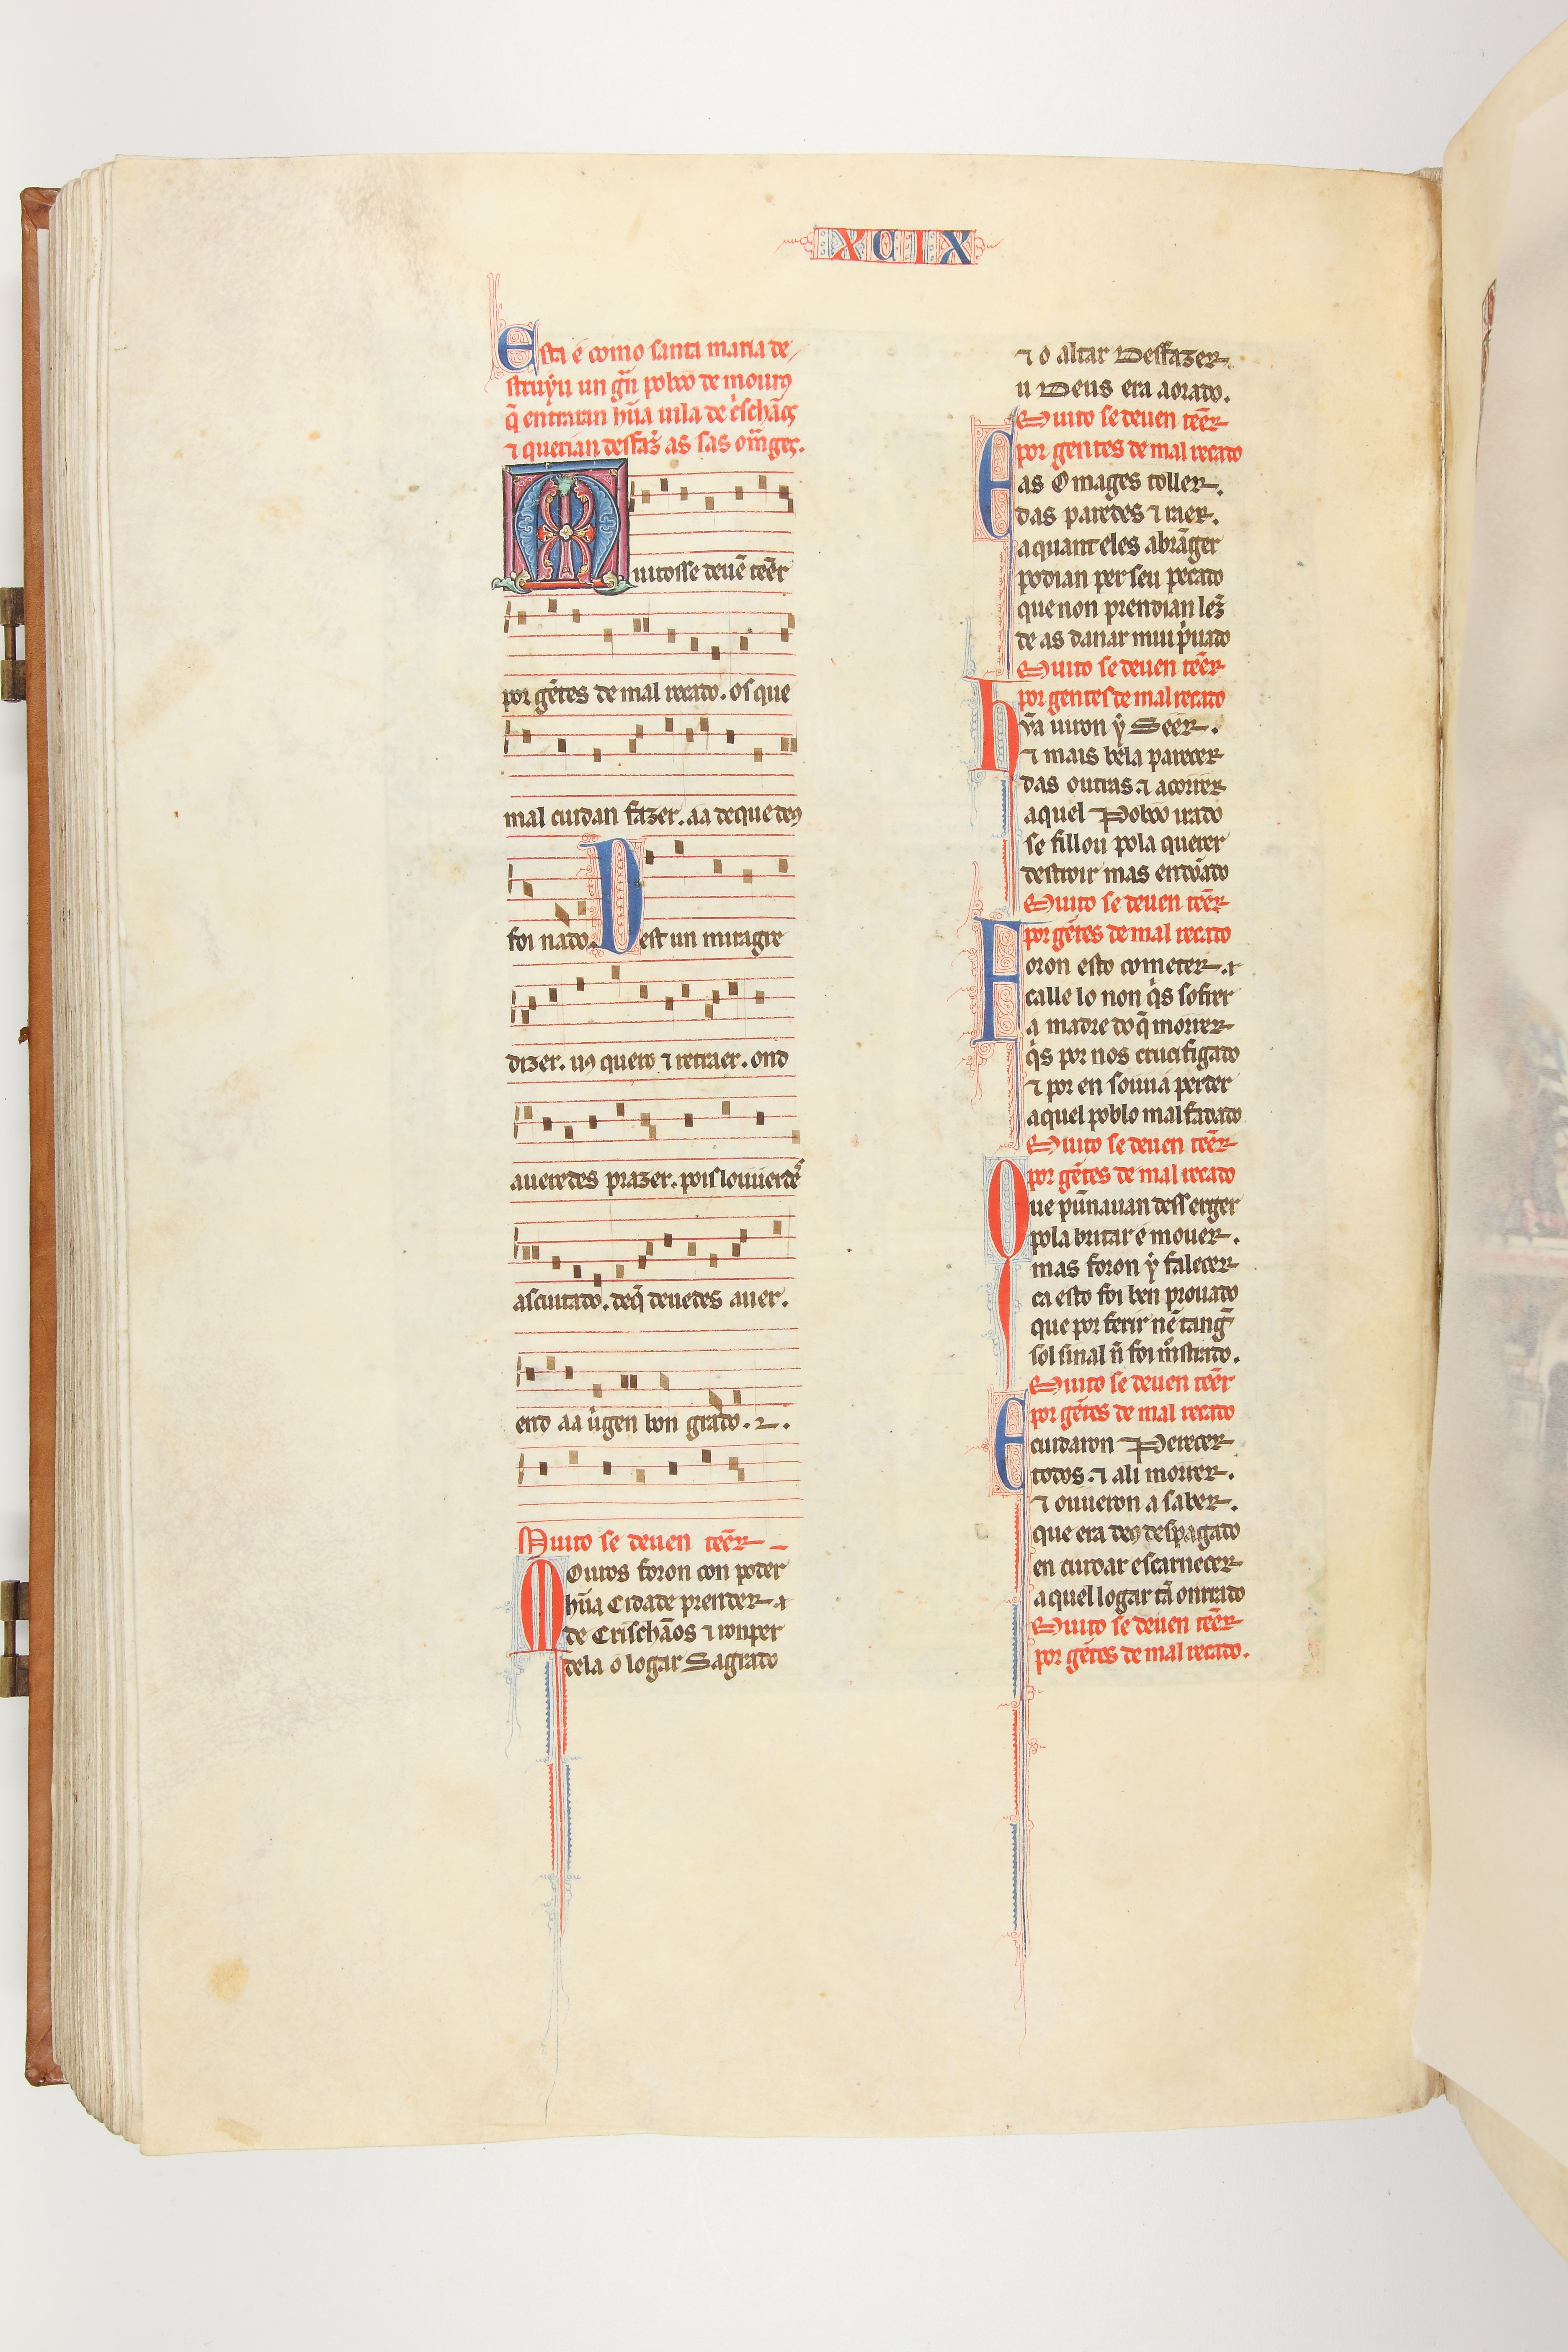 XCIX
Esta é como santa maria de
struyu un gñ poboo de mouros
q̃ entraran hũa uila de c̃schãos
⁊ querian desfaz̃ as sas om̃ges.
Muitosse deuẽ tẽer
por gẽtes de mal recado. os que
mal cuidan fazer. aa de que deus
foi nado. Dest un miragre
dizer. uos quero ⁊ retraer. ond
aueredes prazer. pois lo ouuerdẽs
ascuitado. de q̃ deuedes auer.
end aa uirgen bon grado. ⁊.
Muito se deuen tẽer
Mouros foron con poder
hũa Cidade prender ⁊
de Crischãos ⁊ ronper
dela o logar Sagrado
⁊ o altar Desfazer.
u Deus era aorado.
Muito se deuen tẽer
por gentes de mal recado
E as Omages toller.
das paredes ⁊ raer.
a quant eles abrãger
podian per seu pecado
que non prendian lez̃
de as danar mui p̃uado
Muito se deuen tẽer
por gentes de mal recado
hũa uiron ẏ Seer.
⁊ mais bela parecer
das outras. ⁊ acorrer
aquel Poboo irado
se fillou pola querer
destroir mas endõado
Muito se deuen tẽer
por gẽtes de mal recado
Foron esto cometer. ⁊
calle lo non q̃s sofrer
a madre do q̃ morrer
q̃s por nos crucifigado
⁊ por en souua perder
aquel poblo malfadado
Muito se deuen tẽer
por gẽtes de mal recado
Que punnauan dess erger
pola britar e mouer.
mas foron ẏ falecer
ca esto foi ben prouado
que por ferir nẽ tang̃
sol sinal ñ foi mostrado.
Muito se deuen tẽer
por gẽtes de mal recado
E cuidaron Perecer
todos. ⁊ ali morrer.
⁊ ouueron a saber.
que era deus despagado
en cuidar escarnecer
aquel logar tã onrrado
Muito se deuen tẽer
por gẽtes de mal recado.